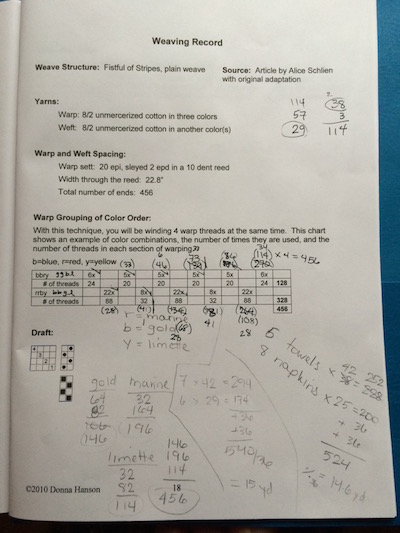 Weaving Record
Weave Structure: Fistful of Stripes, plain weave
Source: Article by Alice Schlien
with original adaptation
Yarns:
Warp: 8/2 unmercerized cotton in three colors
Weft: 8/2 unmercerized cotton in another color(s)
114
57
29
2
38
3
114
Warp and Weft Spacing:
Warp sett: 20 epi, sleyed 2 epd in a 10 dent reed
Width through the reed: 22.8"
Total number of ends: 456
Warp Grouping of Color Order:
With this technique, you will be winding 4 warp threads at the same time. This chart
shows an example of color combinations, the number of times they are used, and the
number of threads in each section of warping.
b=blue, r=red, y=yellow (33) (46) (114) x 4 = 456
bbry 6x 5x 5x 5x 5x 6x
# of threads 24 20 20 20 20 24 128
rrby 22x 8x 22x 8x 22x
# of threads 88 32 88 32 88 328
456
(28) (41) (108)
41
28
r = marine
b = gold
28
y = limette
Draft:
4
3
2
1
gold
64
82
146
marine
32
164
196
limette
32
82
114
146
196
114
456
7 x 42 = 294
6 x 29 = 174
+36
+36
540/36
= 15 yd
6 towels x 42 252
38 = 288
8 napkins x 25 = 200
+ 36
+ 36
524
/36 = 14.6 yd
18
©2010 Donna Hanson